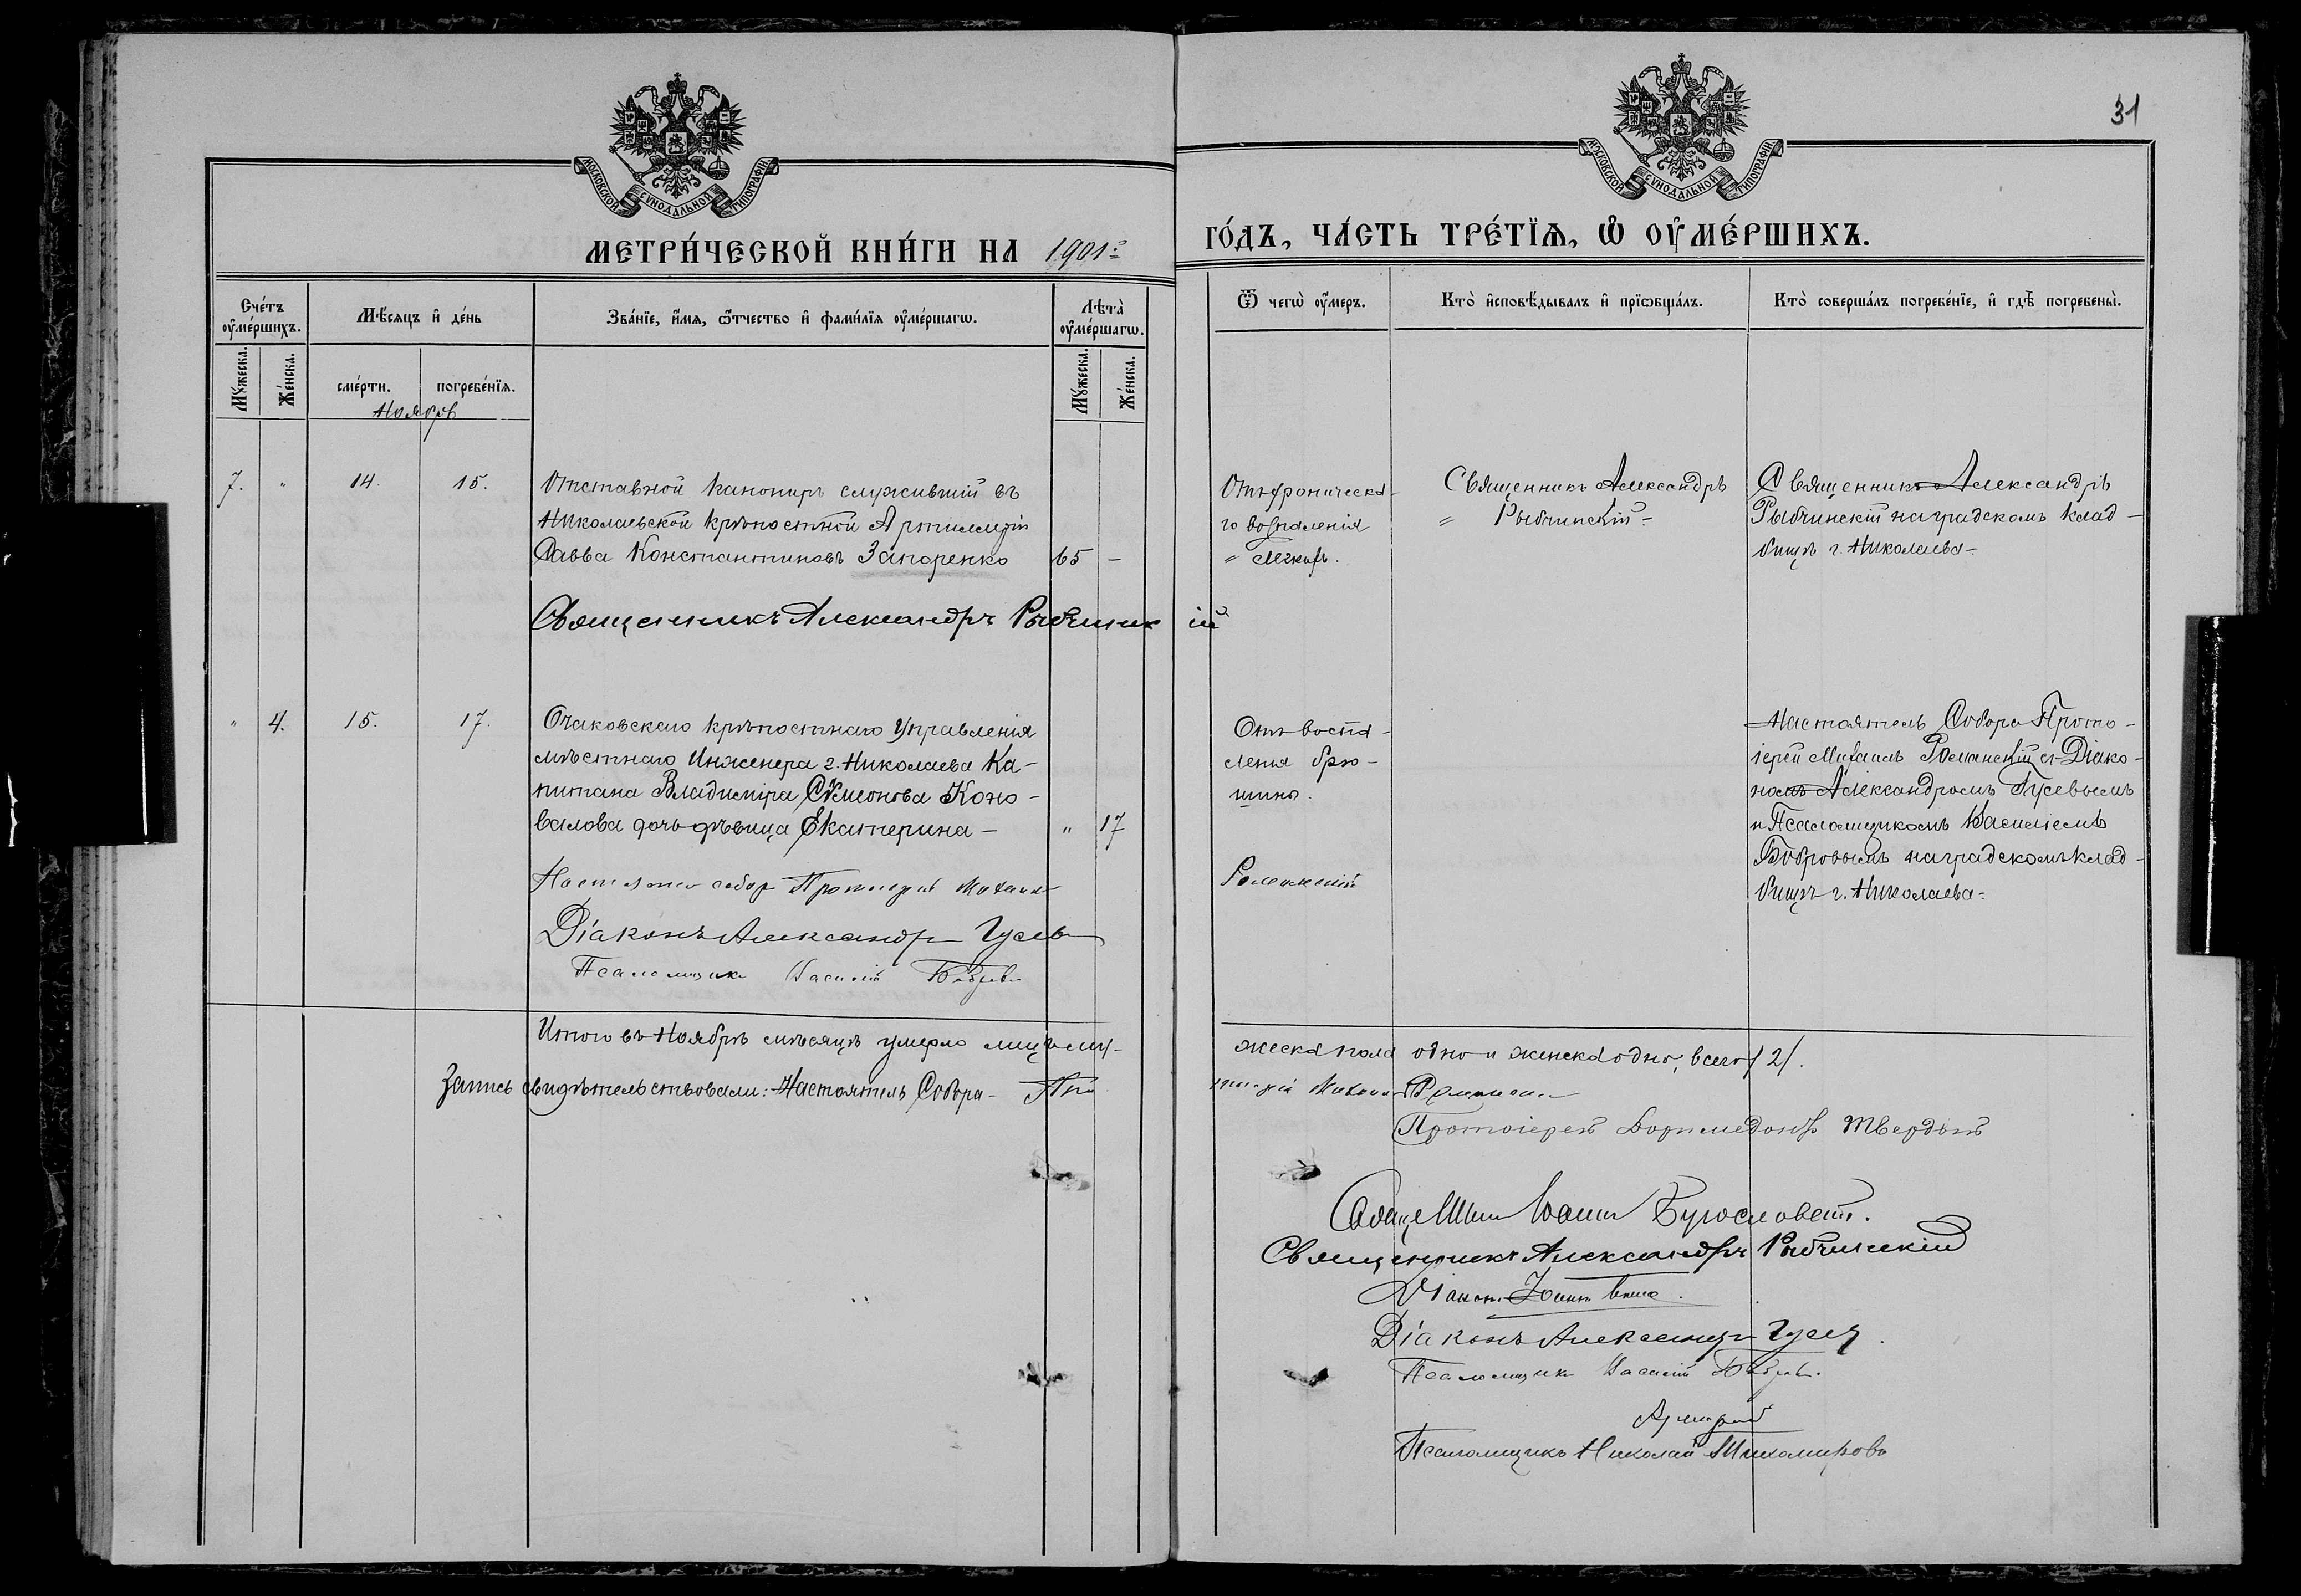 31
МОСКОВСКОЙ СѴНОДАЛЬНОЙ ТИПОГРАФІИ
МОСКОВСКОЙ СѴНОДАЛЬНОЙ ТИПОГРАФІИ
МЕТРИ́ЧЕСКОЙ КНИ́ГИ НА 1901:
ГО́ДЪ, ЧА́СТЬ ТРЕ́ТІѦ, Ѡ ОУМЕ́РШИХЪ.
Сче́тъ оуме́ршихъ.
Мѣ́сѧцъ и де́нь
Зва́нїе, и́мѧ, ѻ́тчество и фами́лїѧ оуме́ршагѡ.
Лѣта̀ оуме́ршагѡ.
Ѿ чегѡ̀ оу́меръ.
Кто̀ и҆сповѣ́дывалъ и҆ прїѡбща́лъ.
Кто̀ соверша́лъ погребе́нїе, и҆ гдѣ̀ погребены̀.
Мꙋ́жеска.
Же́нска.
сме́рти.
погребе́нїѧ.
Мꙋ́жеска.
Же́нска.
Ноябрь
7. " 14. 15.
Отставной канониръ служившій въ
Николаевской крѣпостной Артиллеріи
Савва Константиновъ Запоренко 65 –
Отъ хроническа-
го воспаленія
" легкихъ.
Священникъ Александръ
" Рыбчинскій –
Священникъ Александръ
Рыбчинскій на градскомъ клад-
бищѣ г. Николаева –
Священникъ Александръ Рыбчинскій
" 4. 15. 17.
Очаковскаго крѣпостнаго Управленія
мѣстнаго Инженера г. Николаева Ка-
питана Владиміра Сѷмеонова Коно-
валова дочь дѣвица Екатерина – " 17
Отъ воспа-
ленія брю-
шины.
Настоятель Собора Прото-
іерей Михаилъ Романскій съ Діако-
номъ Александромъ Гусевымъ
и Псаломщикомъ Василіемъ
Бобровымъ на градскомъ клад-
бищѣ г. Николаева –
Настоятель собора Протоіерей Михаилъ Романскій
Діаконъ Александръ Гусевъ
Псаломщикъ Василій Бобровъ
Итого въ Ноябрѣ мѣсяцѣ умерло лицъ му-
жеска пола одно и женска одно, всего /2/.
Запись свидѣтельствовали: Настоятель Собора – Протоіерей Михаилъ Романскій
Протоіерей Твердый
Священникъ Александръ Рыбчинскій
Діаконъ Александръ Гусевъ
Псаломщикъ Василій Бобровъ.
Псаломщикъ Николай Тихомировъ